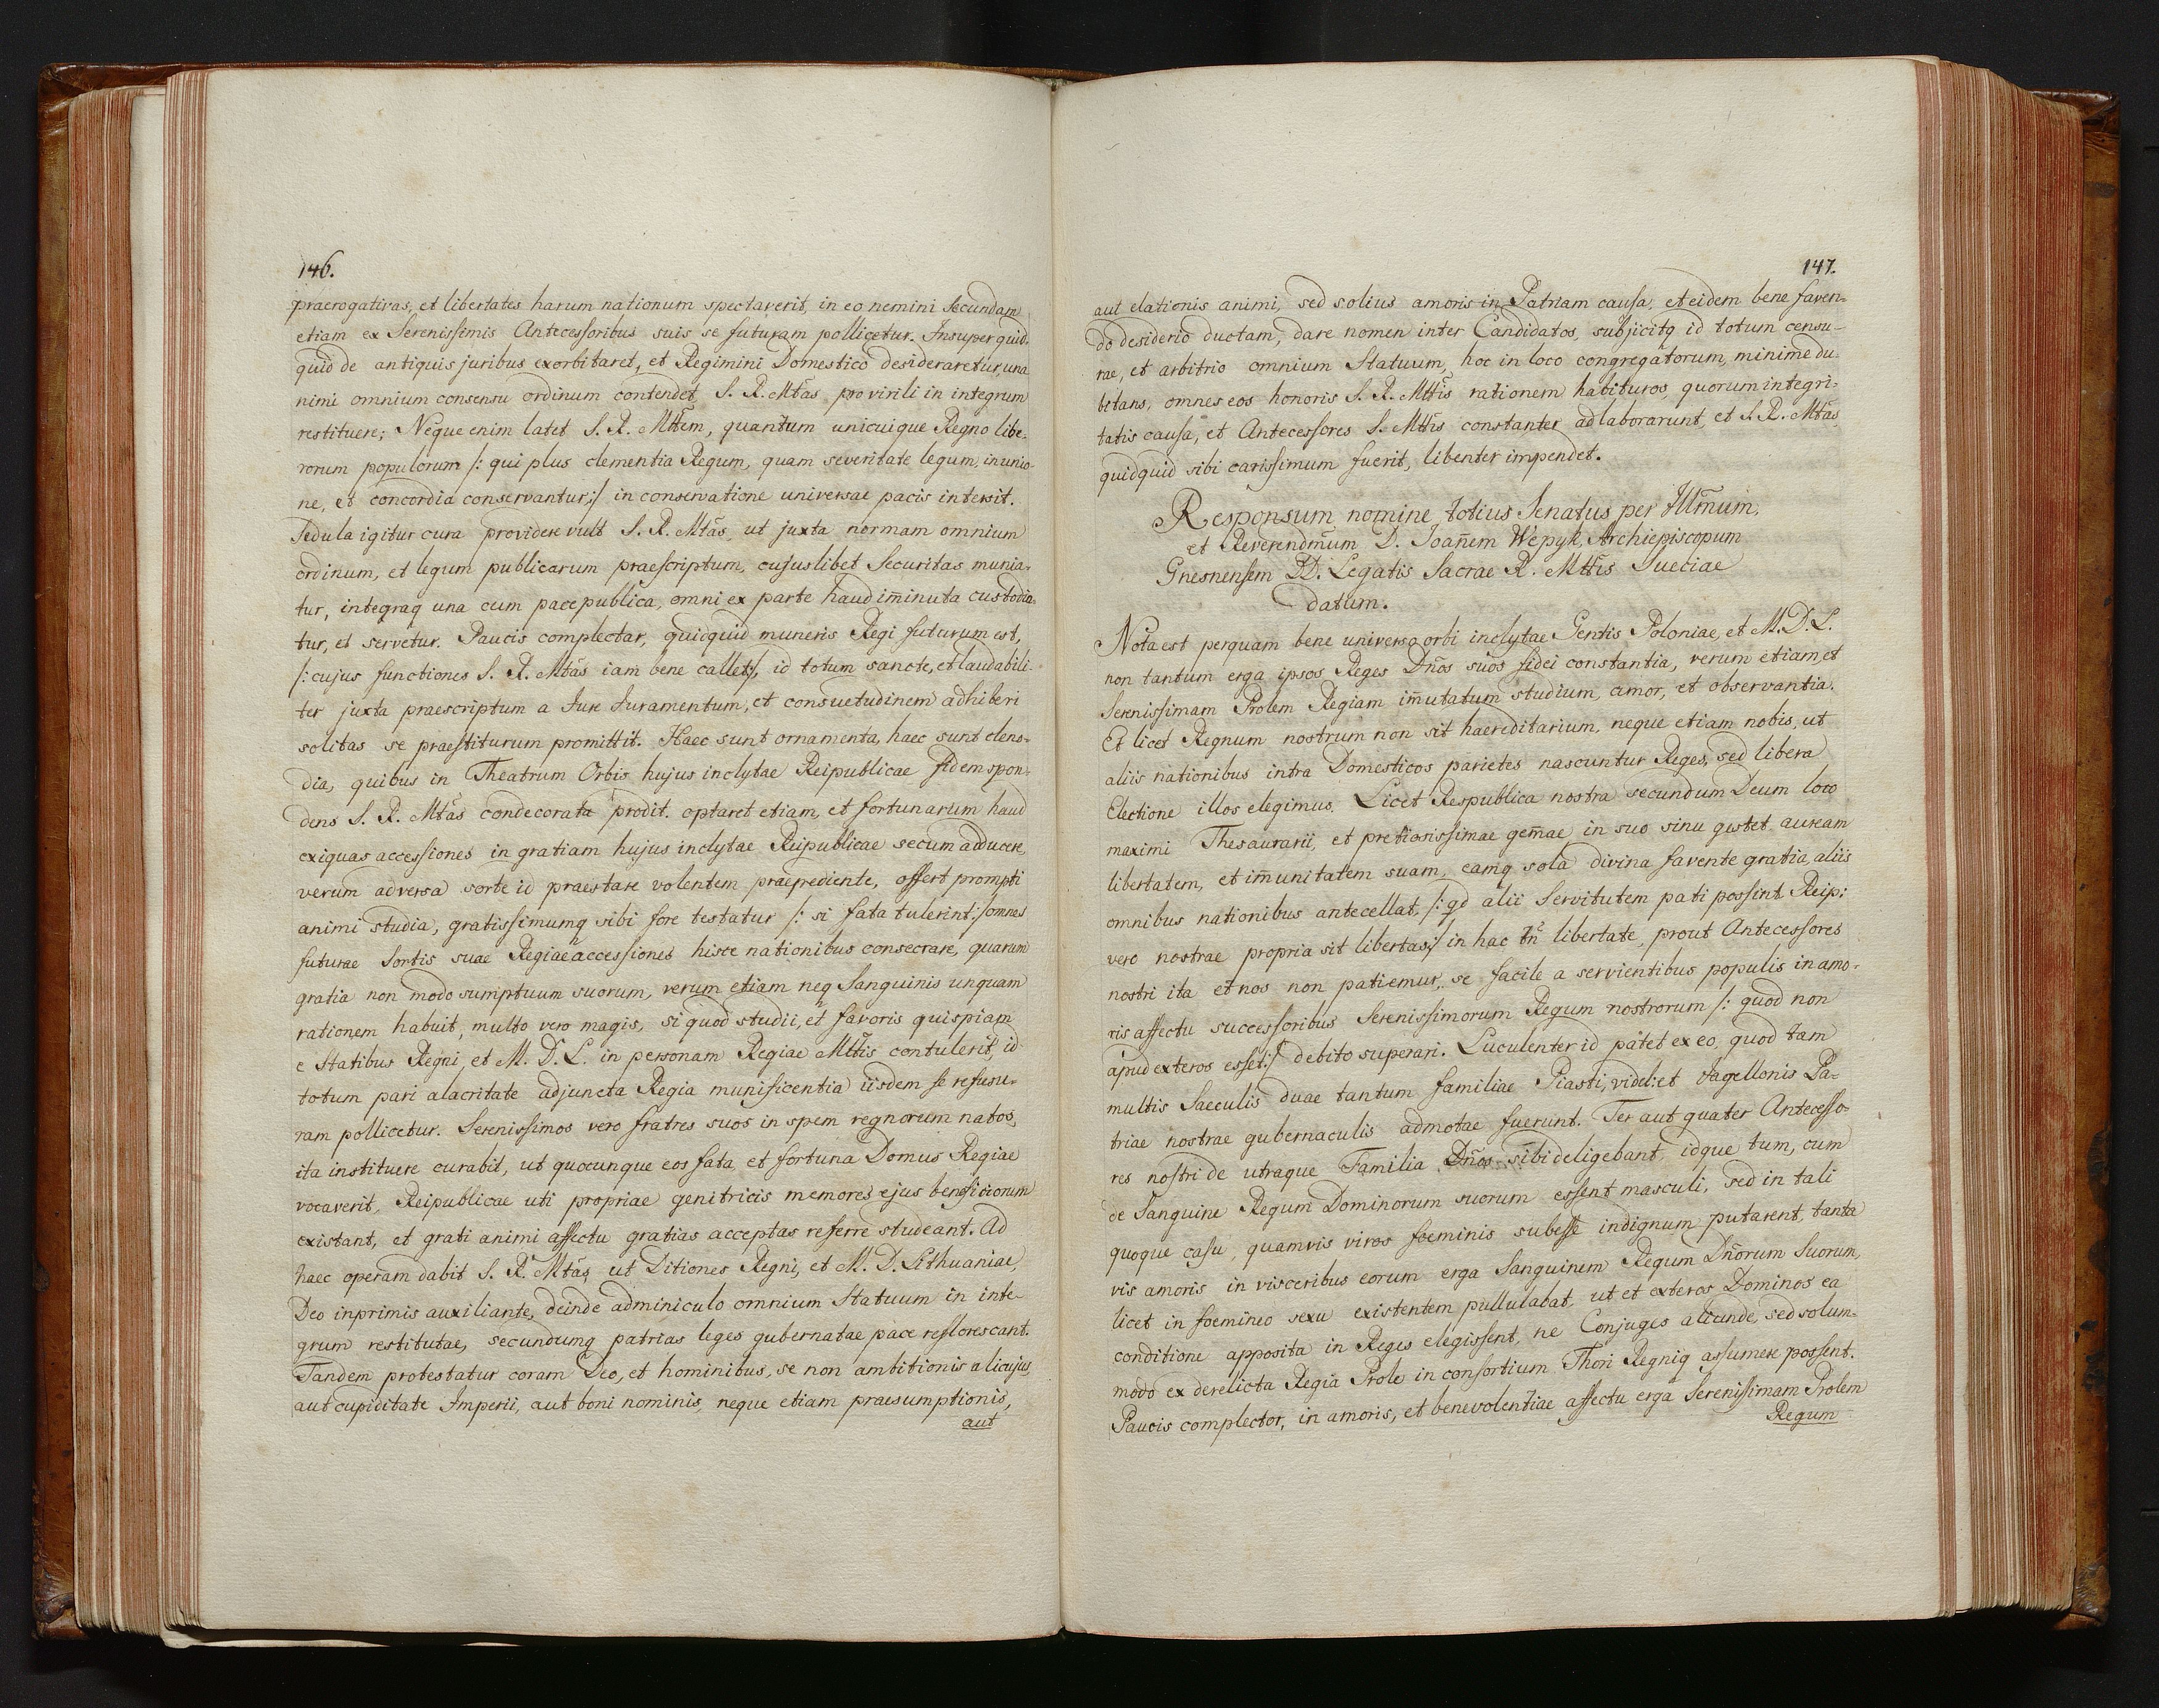 146.
praerogativas, et libertates harum nationum spectaverit, in eo nemini secundam
etiam ex Serenissimis Antecessoribus suis se futuram pollicetur. Insuper quid-
quid de antiquis juribus exorbitaret, et Regimini Domestico desideraretur, una
nimi omnium consensu ordinum contendet S. R. Mtãs pro virili in integrum
restituere; Neque enim latet S. R. Mttem, quantum unicuique Regno libe-
rorum populorum /: qui plus clementia Regum, quam severitate legum, in unio-
ne, et concordia conservantur :/ in conservatione universae pacis intersit.
Sedula igitur cura providere vult S. R. Mtãs, ut juxta normam omnium
ordinum, et legum publicarum praescriptum, cujuslibet Securitas munia-
tur, integraq una cum pace publica, omni ex parte haud im̃inuta custodia-
tur, et servetur. Paucis complectar, quidquid muneris Regi futurum est,
/: cujus functiones S. R. Mtãs iam bene callet :/, id totum sancte, et laudabili-
ter juxta praescriptum a Jure Juramentum, et consvetudinem adhiberi
solitas se praestiturum promittit. Haec sunt ornamenta, haec sunt cleno-
dia, quibus in Theatrum Orbis hujus inclytae Reipublicae fidem spon-
dens S. R. Mtãs condecorata prodit. optaret etiam, et fortunarum haud
exiguas accessiones in gratiam hujus inclytae Reipublicae secum adducere
verum adversa sorte id praestare volentem praepediente, offert prompti
animi studia, gratissimumq sibi fore testatur /: si fata tulerint :/ omnes
futurae Sortis suae Regiae accessiones hisce nationibus consecrare, quarum
gratia non modo sumptuum suorum, verum etiam neq Sanguinis unquam
rationem habuit, multo vero magis, si quod studii, et favoris quispiam
e Statibus Regni, et M. D. L. in personam Regiae Mttis contulerit, id
totum pari alacritate adjuncta Regia munificentia iisdem se refusu-
ram pollicetur. Serenissimos vero fratres suos in spem regnorum natos,
ita instituere curabit, ut quocunque eos fata, et fortuna Domus Regiae
vocaverit, Reipublicae uti propriae genitricis memores ejus beneficiorum
existant, et grati animi affectu gratias acceptas referre studeant. Ad
haec operam dabit S. R. Mtãs, ut Ditiones Regni, et M. D. Lithuaniae,
Deo inprimis auxiliante, deinde adminiculo omnium Statuum in inte-
grum restitutae, secundumq patrias leges gubernatae pace reflorescant.
Tandem protestatur coram Deo, et hominibus, se non ambitionis alicujus,
aut cupiditate Imperii, aut boni nominis, neque etiam praesumptionis,
aut
147.
aut elationis animi, sed solius amoris in Patriam causa, et eidem bene faven-
do desiderio ductam, dare nomen inter Candidatos, subjicitq id totum censu-
rae, et arbitrio omnium Statuum, hoc in loco congregatorum, minime du-
bitans, omnes eos honoris S. R. Mttis rationem habituros, quorum integri-
tatis causa, et Antecessores S. Mttis constanter adlaborarunt, et S. R. Mtãs,
quidquid sibi carissimum fuerit, libenter impendet.
Responsum nomine totius Senatus per Illm̃um,
et Reverendm̃um D. Joañem Wepyk, Archiepiscopum
Gnesnensem DD. Legatis Sacrae R. Mttis Sueciae
datum.
Nota est perquam bene universo orbi inclytae Gentis Poloniae, et M. D. L.
non tantum erga ipsos Reges Dños suos fidei constantia, verum etiam, et
Serenissimam Prolem Regiam im̃utatum studium, amor, et observantia.
Et licet Regnum nostrum non sit haereditarium, neque etiam nobis, ut
aliis nationibus intra Domesticos parietes nascuntur Reges, sed libera
Electione illos elegimus. Licet Respublica nostra secundum Deum loco
maximi Thesaurarii, et pretiosissimae gem̃ae in suo sinu gestet auream
libertatem, et im̃unitatem suam, eamq sola divina favente gratia, aliis
omnibus nationibus antecellat, /: qd alii Servitutem pati possint Reip:
vero nostrae propria sit libertas :/ in hac tñ libertate, prout Antecessores
nostri ita et nos non patiemur, se facile a servientibus populis in amo-
ris affectu successoribus Serenissimorum Regum nostrorum /: quod non
apud exteros esset :/ debito superari. Luculenter id patet ex eo, quod tam
multis Saeculis duae tantum familiae Piasti, videl: et Jagellonis Pa-
triae nostrae gubernaculis admotae fuerunt. Ter aut quater Antecesso-
res nostri de utraque Familia Dños sibi deligebant, idque tum, cum
de Sanguine Regum Dominorum suorum essent masculi, sed in tali
quoque casu, quamvis viros foeminis subesse indignum putarent, tanta
vis amoris in visceribus eorum erga Sanguinem Regum Dñorum Suorum,
licet in foemineo sexu existentem pullulabat, ut et exteros Dominos ea
conditione apposita in Reges elegissent, ne Conjuges aliunde, sed solum-
modo ex derelicta Regia Prole in consortium Thori Regniq assumere possent.
Paucis complector, in amoris, et benevolentiae affectu erga Serenissimam Prolem
Regum